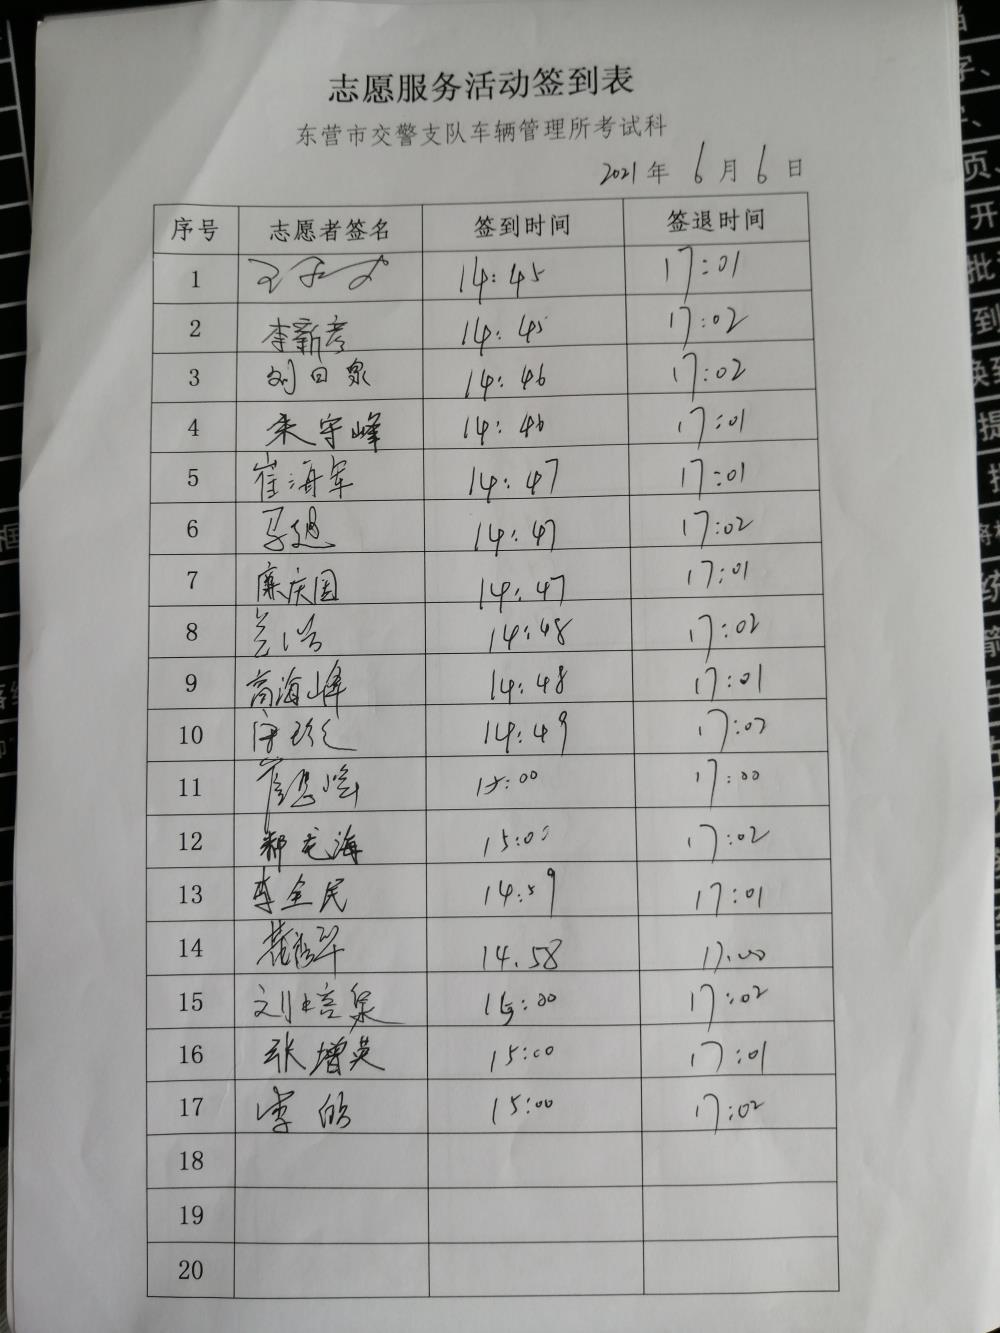 志愿服务活动签到表
东营市交警支队车辆管理所考试科
2021年 6月 6日
序号 志愿者签名 签到时间 签退时间
1 14:45 17:01
2 李新彦 14:45 17:02
3 刘日泉 14:46 17:02
4 宋守峰 14:46 17:01
5 崔海军 14:47 17:01
6 14:47 17:02
7 廉庆国 14:47 17:01
8 14:48 17:02
9 高海峰 14:48 17:01
10 14:49 17:02
11 15:00 17:00
12 15:00 17:02
13 李全民 14:59 17:01
14 14.58 17.00
15 刘培泉 15:00 17:02
16 张增英 15:00 17:01
17 李皓 15:00 17:02
18
19
20